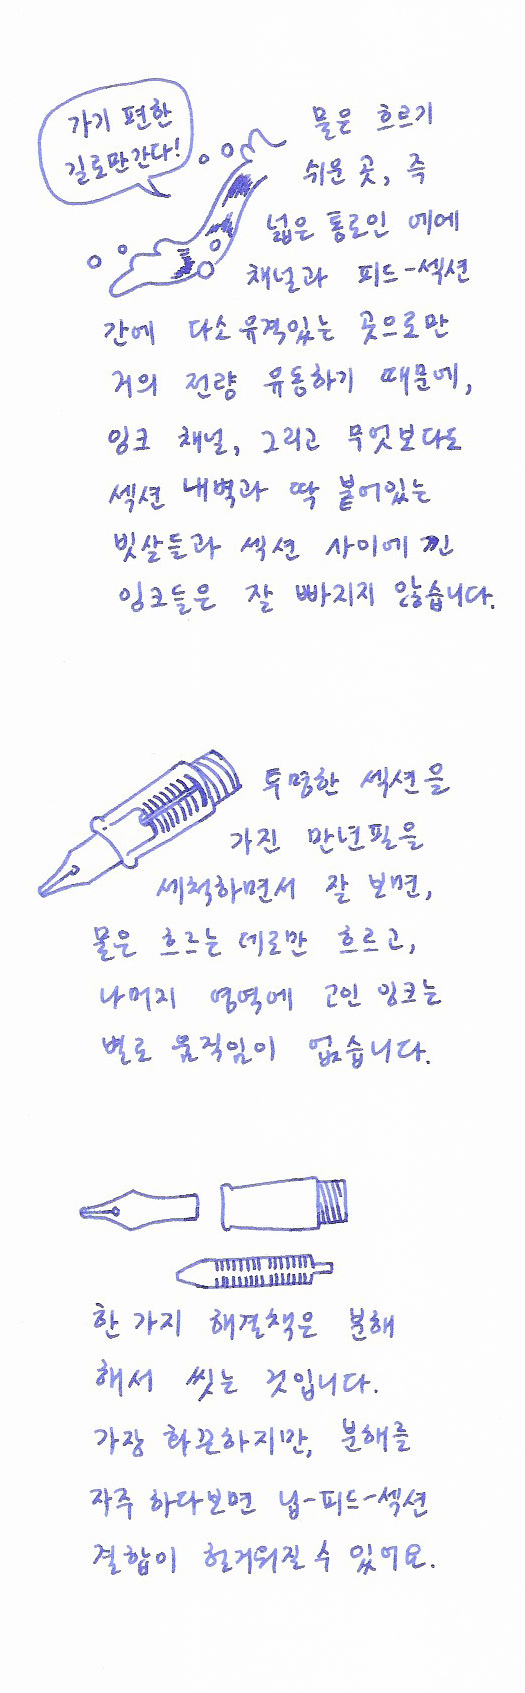 가기 편한
길로만간다!
물은 흐르기
쉬운 곳, 즉
넓은 통로인 에어
채널과 피드-섹션
간에 다소 유격있는 곳으로만
거의 전량 유동하기 때문에,
잉크 채널, 그리고 무엇보다도
섹션 내벽과 딱 붙어있는
빗살들과 섹션 사이에 낀
잉크들은 잘 빠지지 않습니다.
투명한 섹션을
가진 만년필을
세척하면서 잘 보면,
물은 흐르는 데로만 흐르고,
나머지 영역에 고인 잉크는
별로 움직임이 없습니다.
한 가지 해결책은 분해
해서 씻는 것입니다.
가장 화끈하지만, 분해를
자주 하다보면 닙-피드-섹션
결합이 헐거워질 수 있어요.